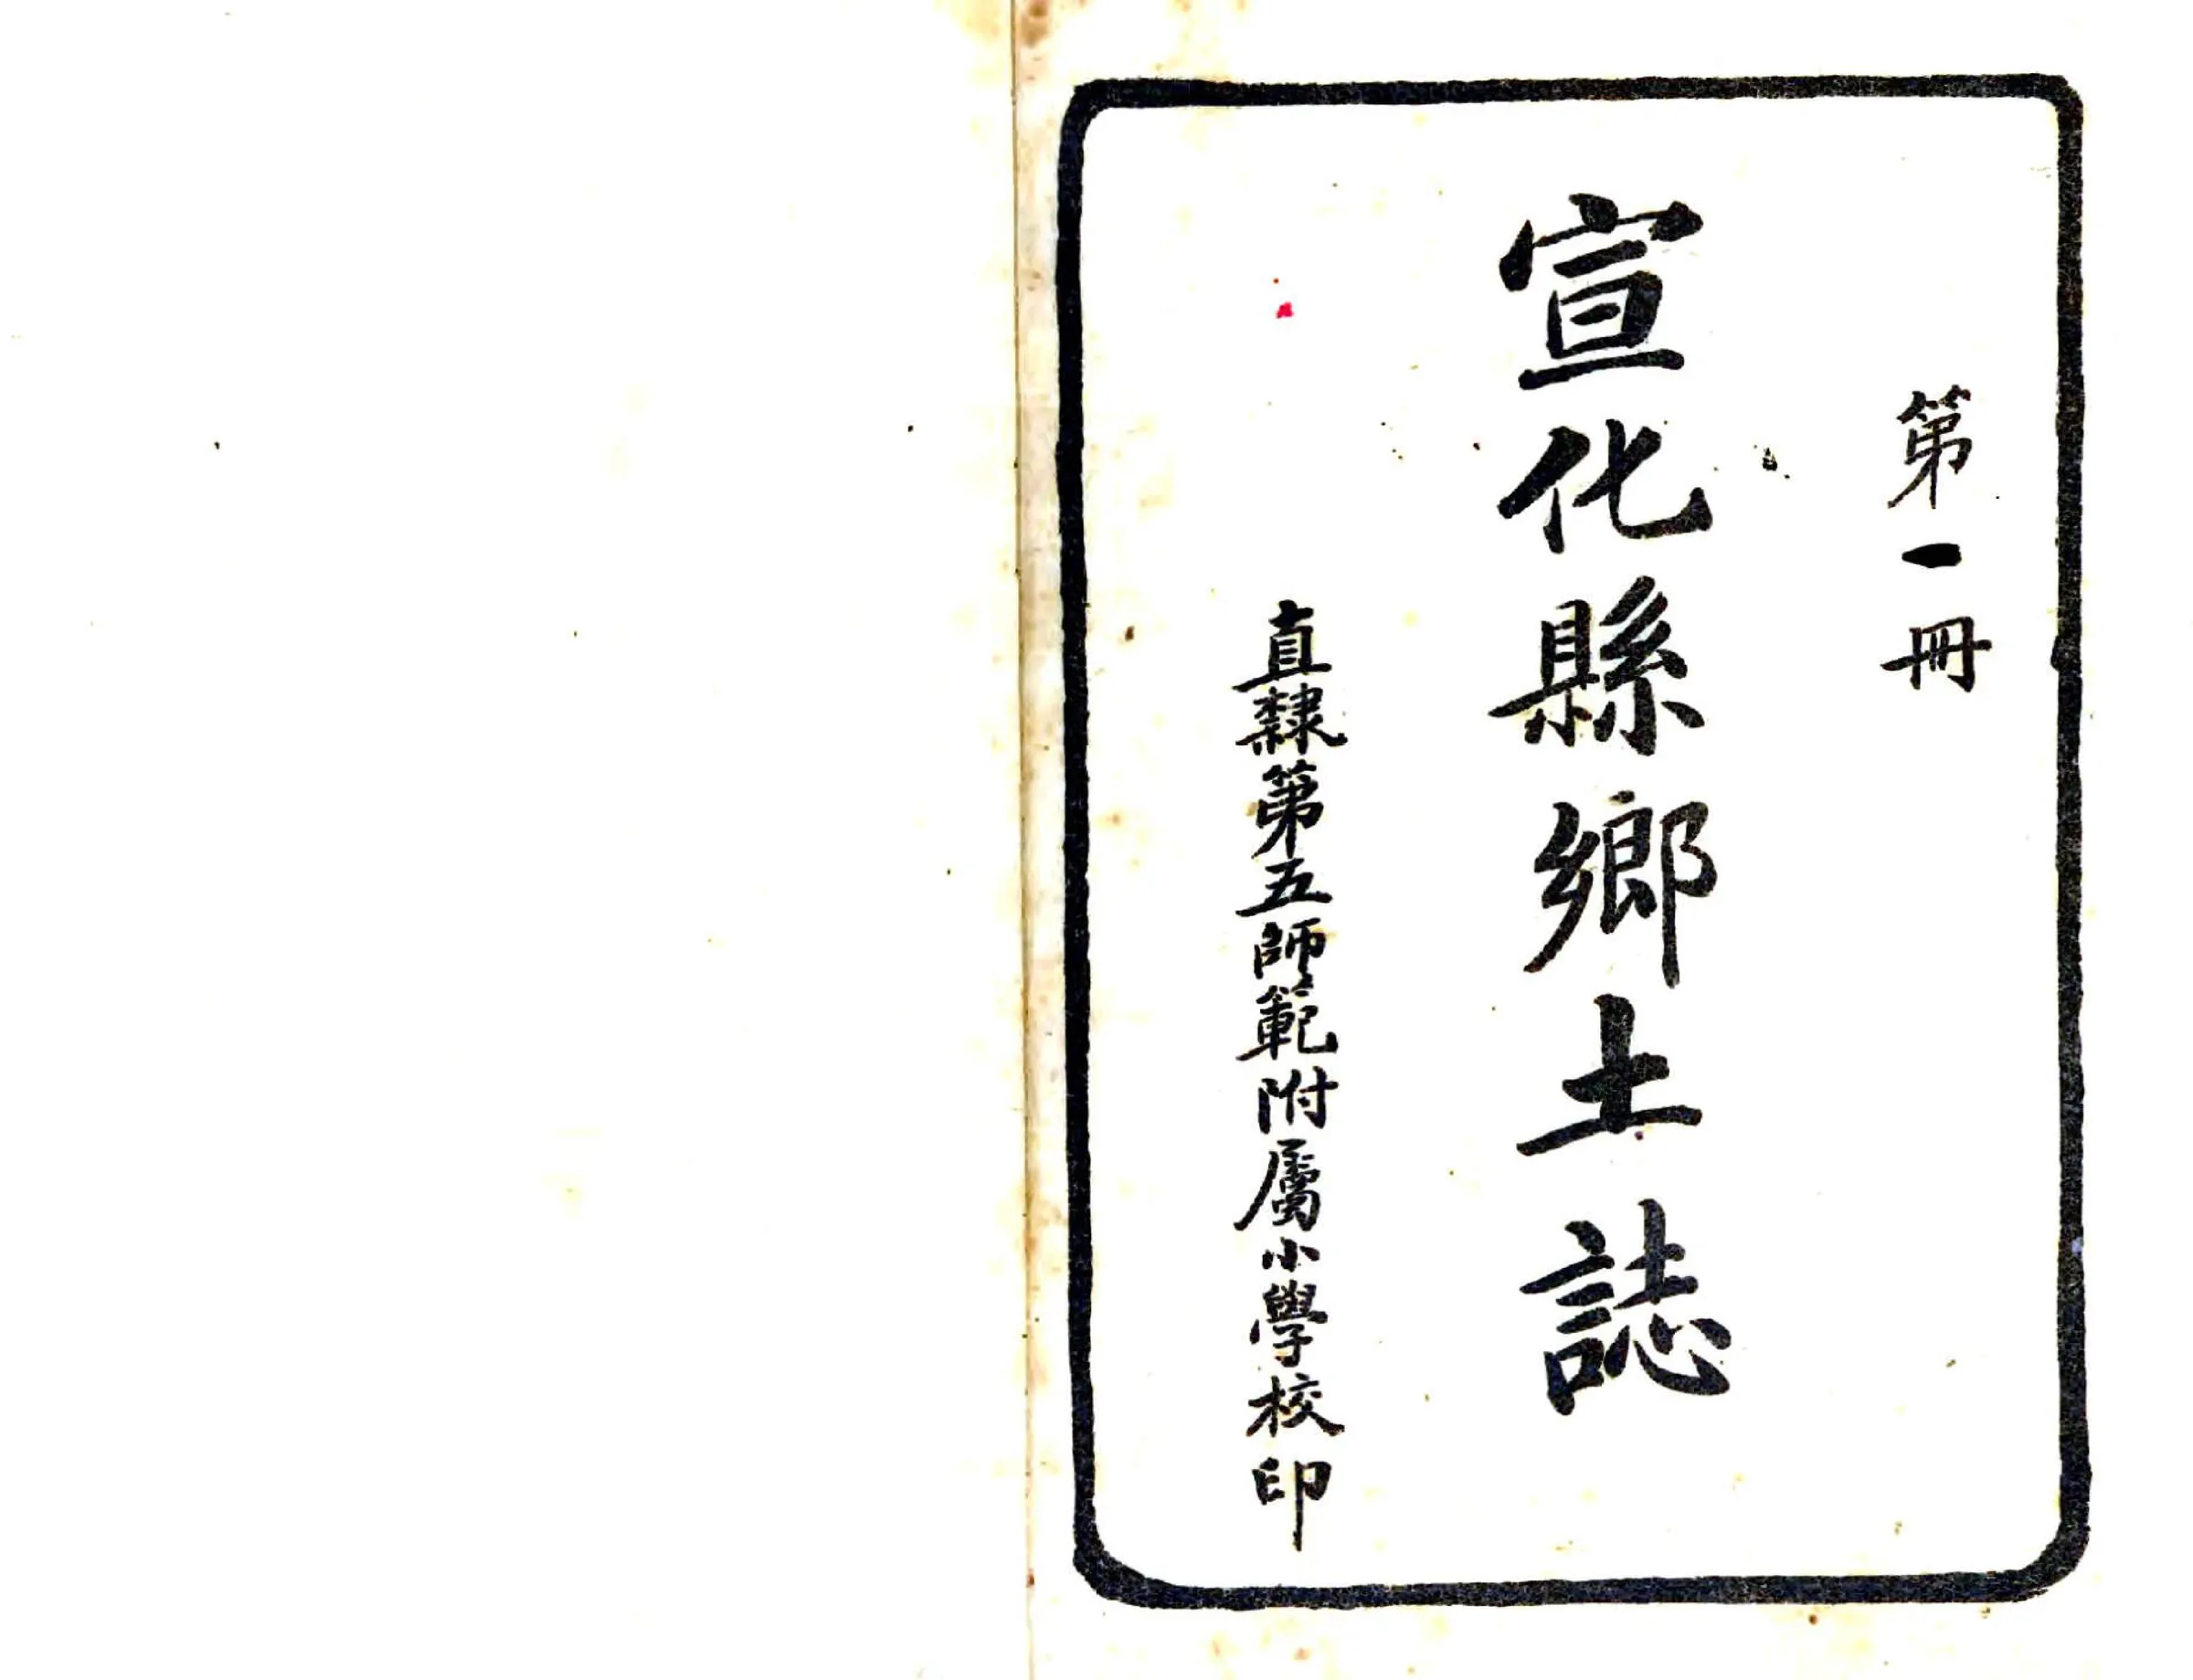 第一冊
宣化縣鄉土誌
直隸第五師範附屬小學校印